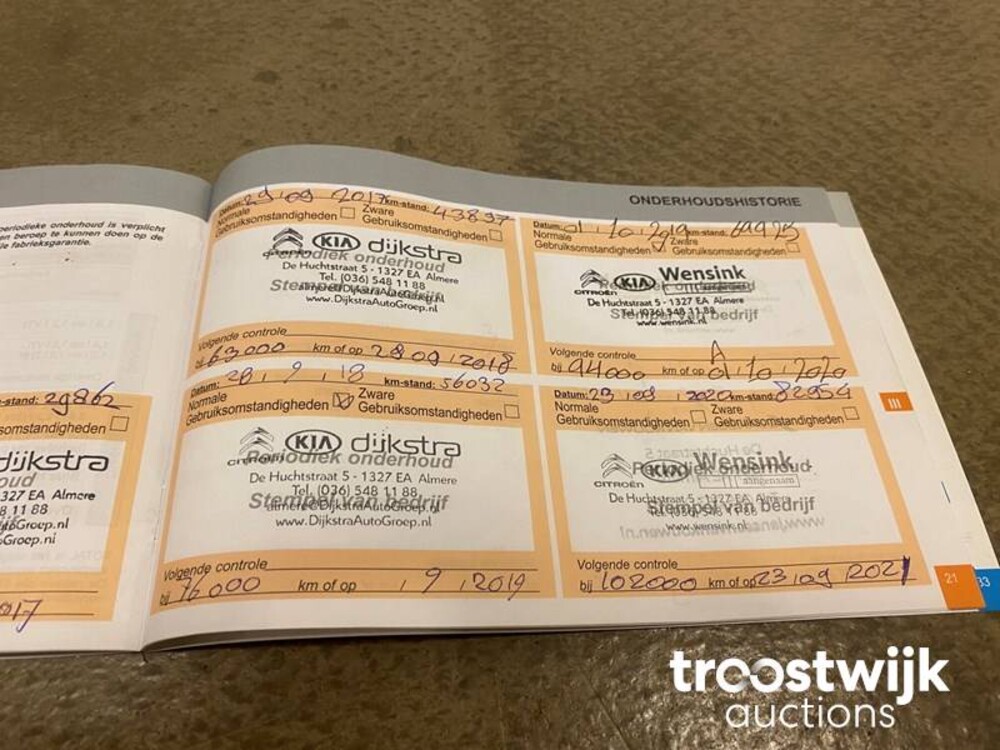 periodieke onderhoud is verplicht
en beroep te kunnen doen op de
fabrieksgarantie.
-stand: 29862
somstandigheden
dijkstra
oud
327 EA Almere
8 11 88
Groep.nl
oGroep.nl
2017
ONDERHOUDSHISTORIE
Datum: 29 09 2017 km-stand: 43897
Normale Zware
Gebruiksomstandigheden Gebruiksomstandigheden
KIA dijkstra
Periodiek onderhoud
De Huchtstraat 5 - 1327 EA Almere
Tel. (036) 548 11 88
Stempel van bedrijf
almere@DijkstraAutoGroep.nl
www.DijkstraAutoGroep.nl
Volgende controle
bij 63000 km of op 28 09 2018
Datum: 28 9 18 km-stand: 56032
Normale Zware
Gebruiksomstandigheden Gebruiksomstandigheden
CITROËN KIA dijkstra
Periodiek onderhoud
De Huchtstraat 5 - 1327 EA Almere
Tel. (036) 548 11 88
Stempel van bedrijf
almere@DijkstraAutoGroep.nl
www.DijkstraAutoGroep.nl
Volgende controle
bij 76000 km of op 9 2019
Datum: 01 10 2019 km-stand:
Normale Zware
Gebruiksomstandigheden Gebruiksomstandigheden
CITROËN KIA Wensink
Periodiek onderhoud
De Huchtstraat 5 - 1327 EA Almere
Tel. (036) 548 11 88
Stempel van bedrijf
www.wensink.nl
Volgende controle
bij 94000 km of op 01 10 2020
Datum: 23 09 2020 km-stand: 82954
Normale Zware
Gebruiksomstandigheden Gebruiksomstandigheden
CITROËN KIA Wensink
Periodiek onderhoud
aangenaam
De Huchtstraat 5 - 1327 EA Almere
Stempel van bedrijf
Tel. (036) 548 11 88
www.wensink.nl
Volgende controle
bij 102000 km of op 23 09 2021
III
21
33
troostwijk
auctions